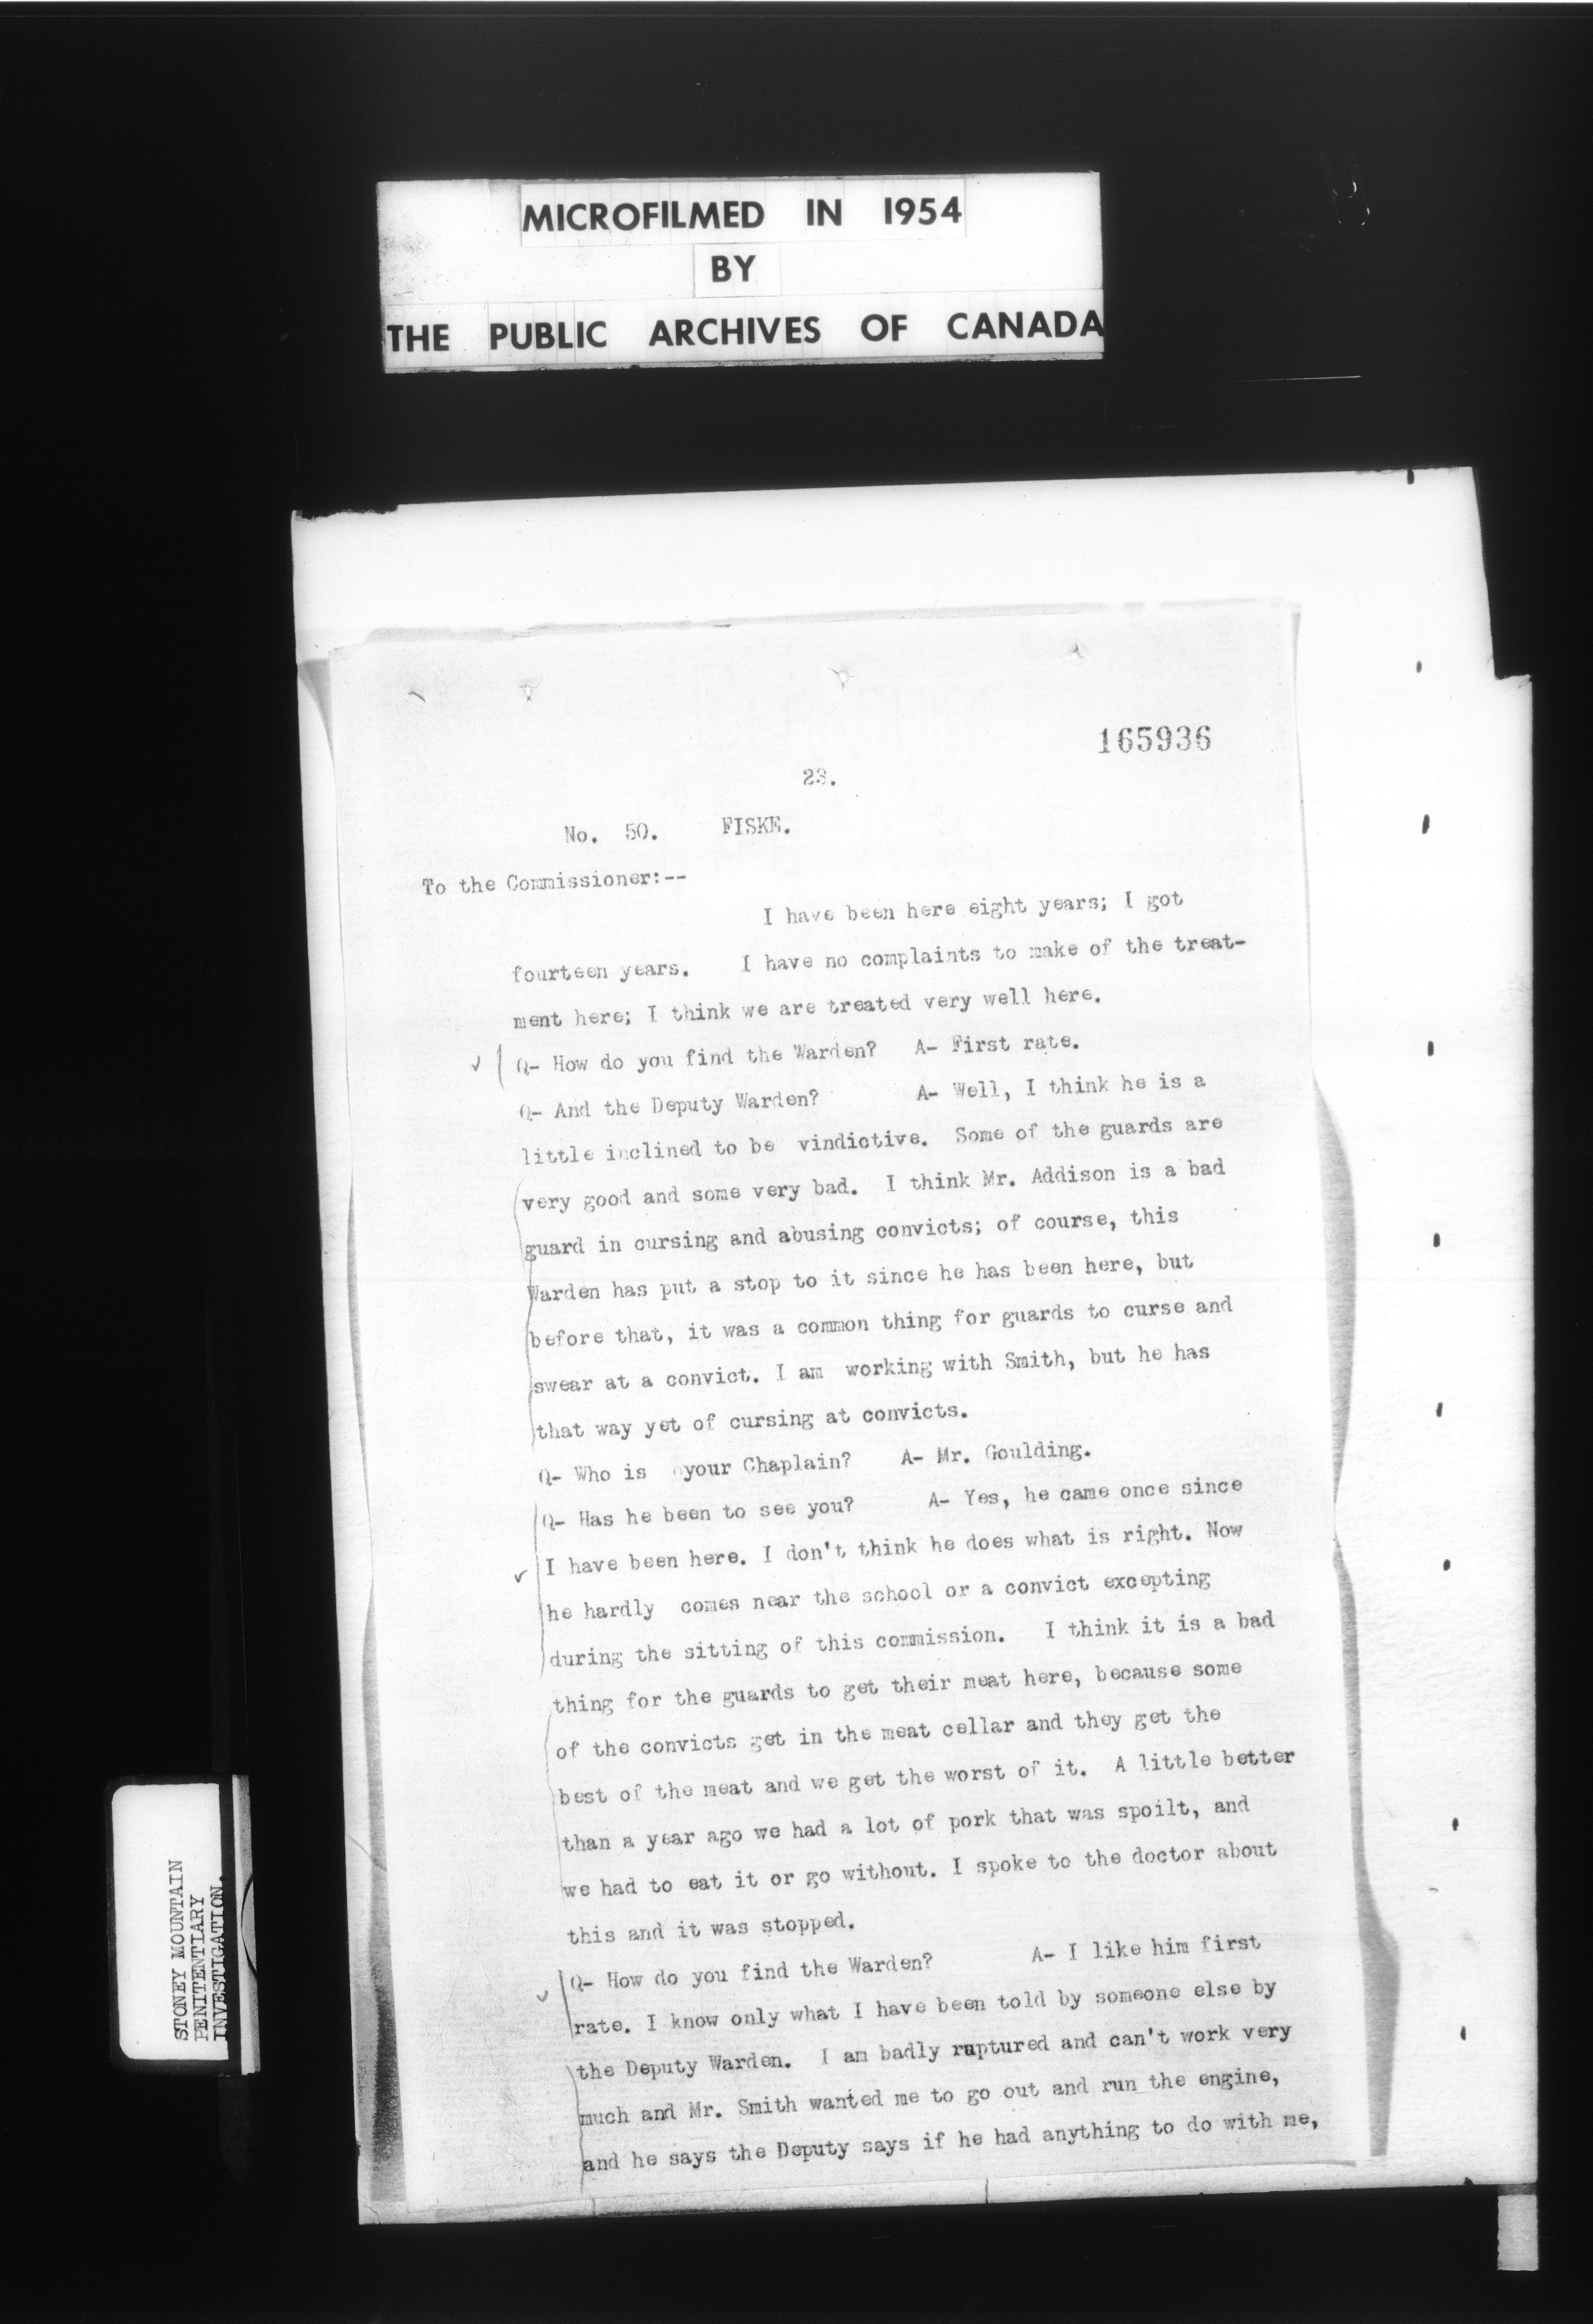 MICROFILMED IN 1954
BY
THE PUBLIC ARCHIVES OF CANADA
165936
23.
No. 50. FISKE.
To the Commissioner:--
I have been here eight years; I got
fourteen years. I have no complaints to make of the treat-
ment here; I think we are treated very well here.
Q- How do you find the Warden? A- First rate.
Q- And the Deputy Warden? A- Well, I think he is a
little inclined to be vindictive. Some of the guards are
very good and some very bad. I think Mr. Addison is a bad
guard in cursing and abusing convicts; of course, this
Warden has put a stop to it since he has been here, but
before that, it was a common thing for guards to curse and
swear at a convict. I am working with Smith, but he has
that way yet of cursing at convicts.
Q- Who is your Chaplain? A- Mr. Goulding.
Q- Has he been to see you? A- Yes, he came once since
I have been here. I don't think he does what is right. Now
he hardly comes near the school or a convict excepting
during the sitting of this commission. I think it is a bad
thing for the guards to get their meat here, because some
of the convicts get in the meat cellar and they get the
best of the meat and we get the worst of it. A little better
than a year ago we had a lot of pork that was spoilt, and
we had to eat it or go without. I spoke to the doctor about
this and it was stopped.
Q- How do you find the Warden? A- I like him first
rate. I know only what I have been told by someone else by
the Deputy Warden. I am badly ruptured and can't work very
much and Mr. Smith wanted me to go out and run the engine,
and he says the Deputy says if he had anything to do with me,
STONEY MOUNTAIN
PENITENTIARY
INVESTIGATION.